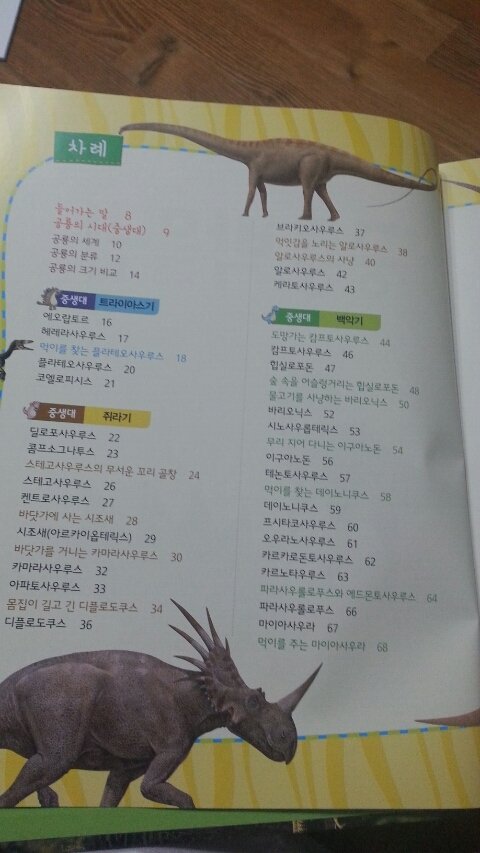 차례
들어가는 말 8
공룡의 시대(중생대) 9
공룡의 세계 10
공룡의 분류 12
공룡의 크기 비교 14
중생대 트라이아스기
에오랍토르 16
헤레라사우루스 17
먹이를 찾는 플라테오사우루스 18
플라테오사우루스 20
코엘로피시스 21
중생대 쥐라기
딜로포사우루스 22
콤프소그나투스 23
스테고사우루스의 무서운 꼬리 골창 24
스테고사우루스 26
켄트로사우루스 27
바닷가에 사는 시조새 28
시조새(아르카이옵테릭스) 29
바닷가를 거니는 카마라사우루스 30
카마라사우루스 32
아파토사우루스 33
몸집이 길고 긴 디플로도쿠스 34
디플로도쿠스 36
브라키오사우루스 37
먹잇감을 노리는 알로사우루스 38
알로사우루스의 사냥 40
알로사우루스 42
케라토사우루스 43
중생대 백악기
도망가는 캄프토사우루스 44
캄프토사우루스 46
힙실로포돈 47
숲 속을 어슬렁거리는 힙실로포돈 48
물고기를 사냥하는 바리오닉스 50
바리오닉스 52
시노사우롭테릭스 53
무리 지어 다니는 이구아노돈 54
이구아노돈 56
테논토사우루스 57
먹이를 찾는 데이노니쿠스 58
데이노니쿠스 59
프시타코사우루스 60
오우라노사우루스 61
카르카로돈토사우루스 62
카르노타우루스 63
파라사우롤로푸스와 에드몬토사우루스 64
파라사우롤로푸스 66
마이아사우라 67
먹이를 주는 마이아사우라 68